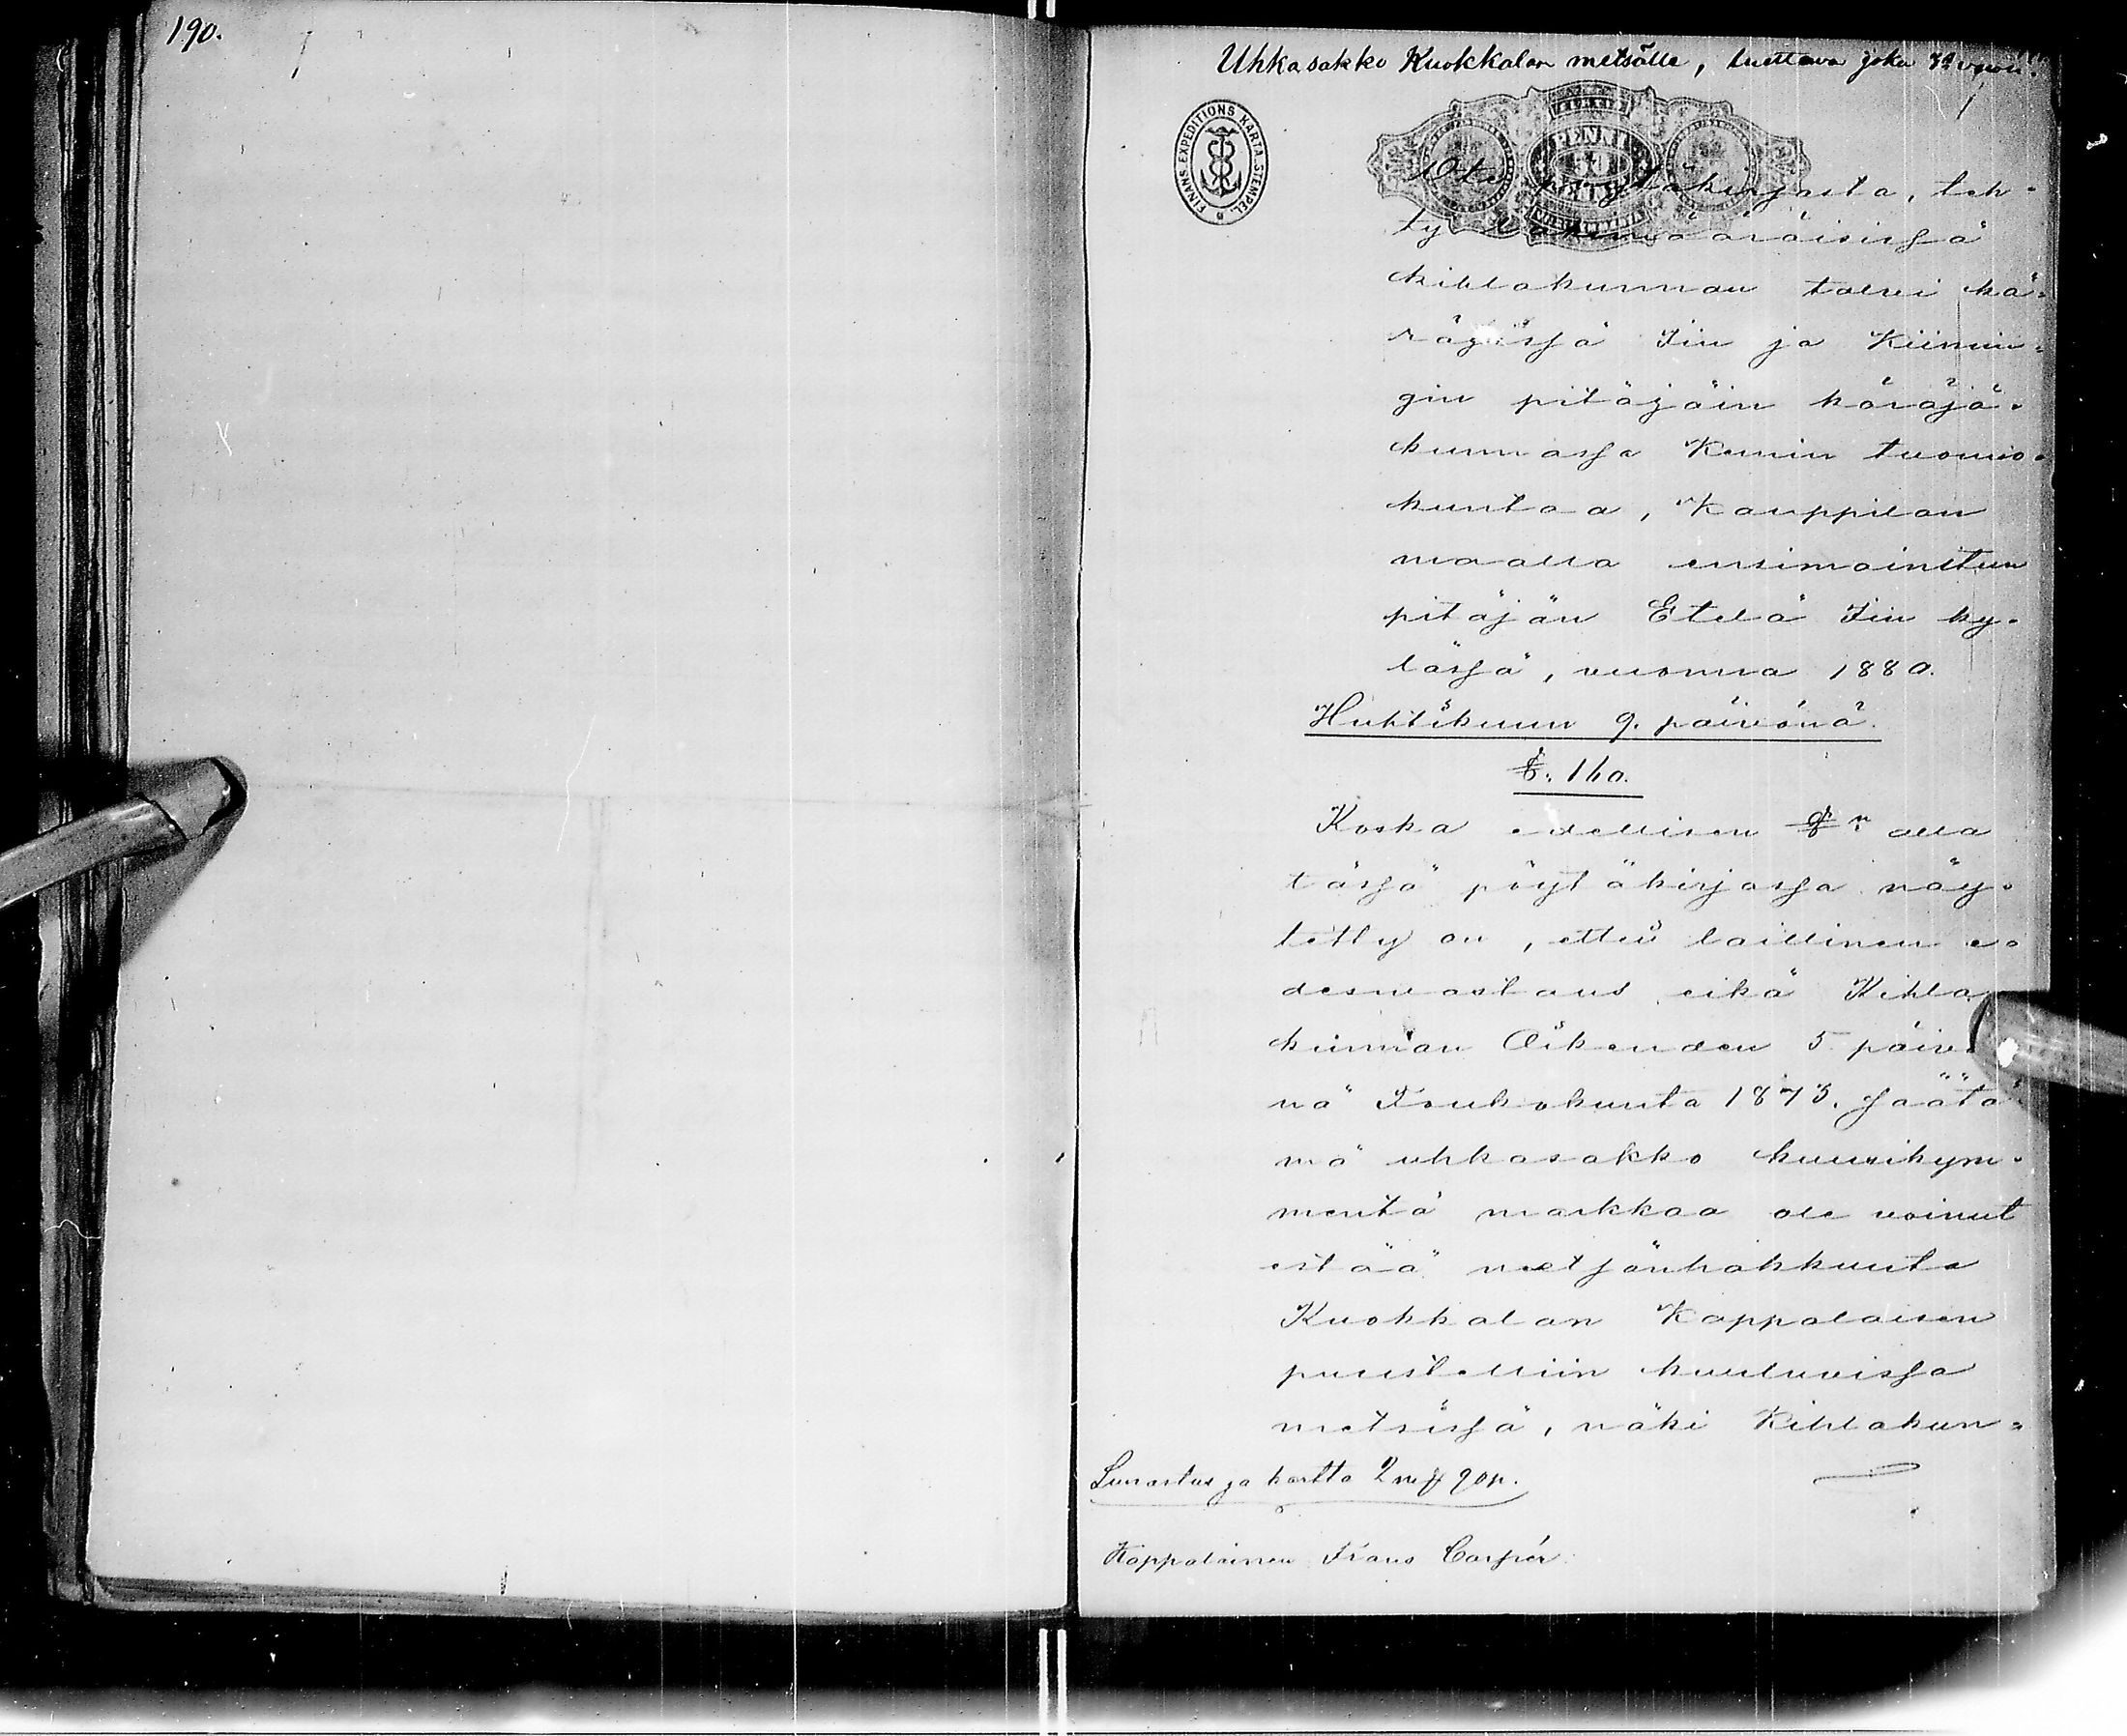 190.
Uhkasakko Kuokkalan metsälle, luettava joka vuosi.
FINANS. EXPEDITIONS KARTA. STEMPEL.
PENNI
Ote pöytäkirjasta, teh-
ty lakimääräisissä
kihlakunnan talvi kä-
räjissä Iin ja Kiimin-
gin pitäjäin käräjä-
kunnassa Kemin tuomio-
kuntaa, Kauppilan
maalla ensimainitun
pitäjän Etelä Iin ky-
lässä, vuonna 1880.
Huhtikuun 9. päivänä.
§. 160.
Koska edellisen §n alla
tässä pöytäkirjassa näy-
tetty on, ettei laillinen e-
desvastaus eikä Kihla
kunnan Oikeuden 5 päivä
nä Toukokuuta 1873. säätä
mä uhkasakko kuusikym-
mentä markkaa ole voinut
estää metsänhakkuuta
Kuokkalan Kappalaisen
puustelliin kuuluvissa
metsissä, näki Kihlakun-
Lunastus ja kartta 2 mf 90 p.
Kappalainen Frans Cajan